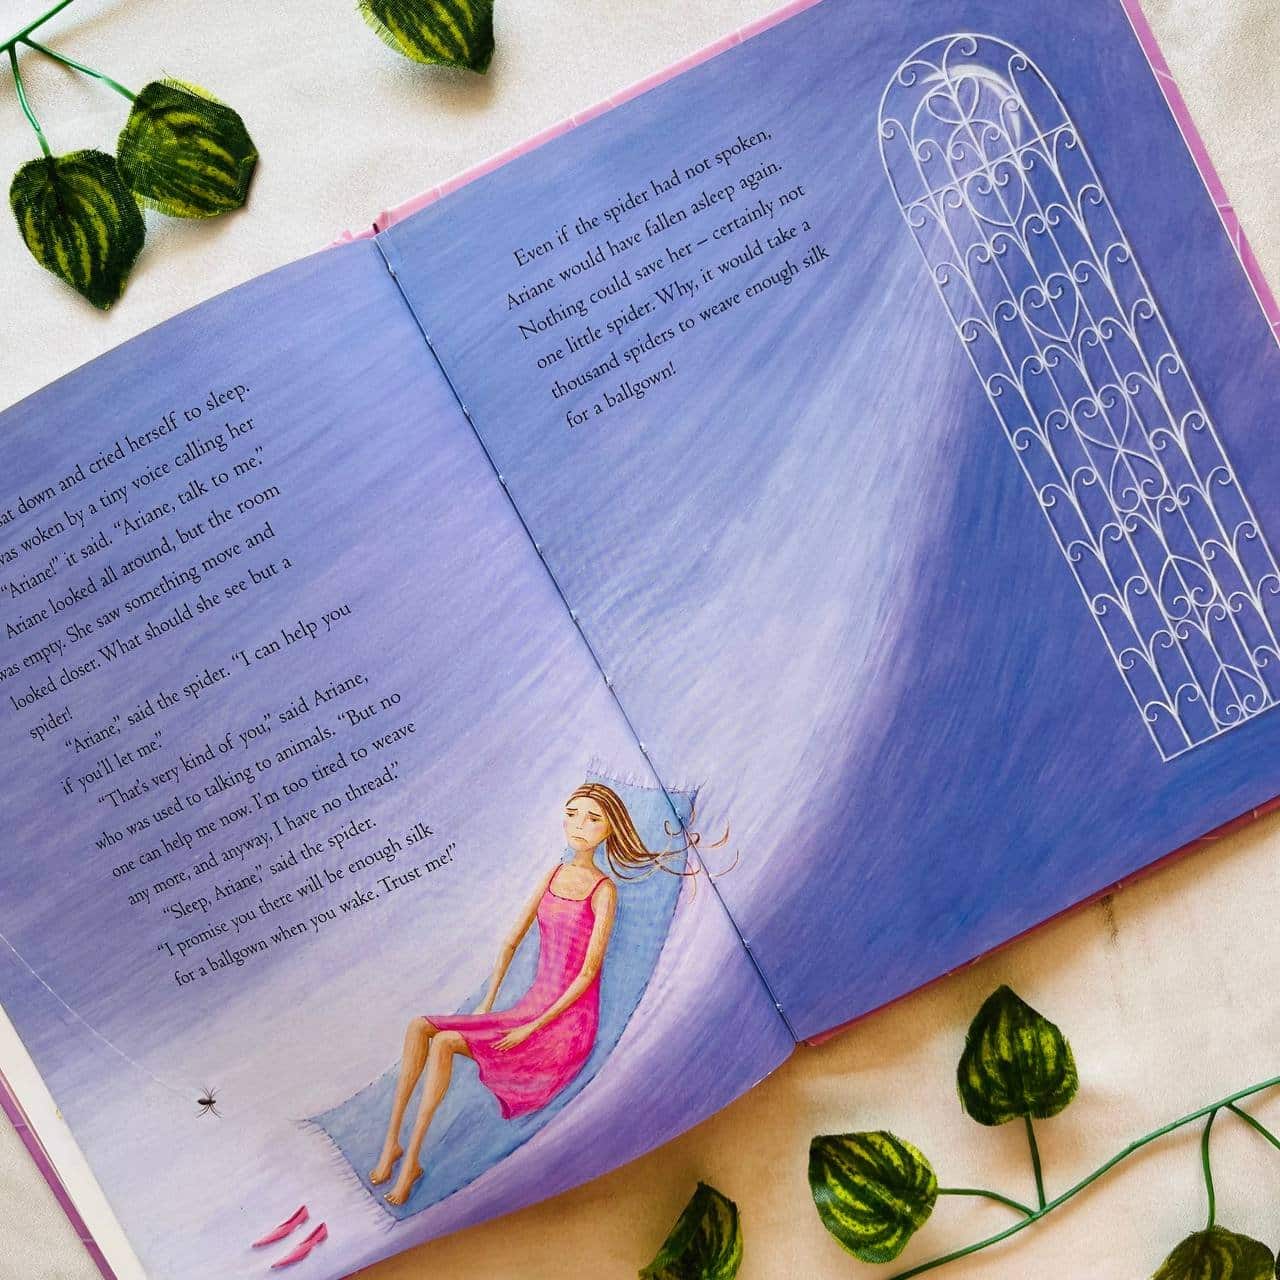 sat down and cried herself to sleep.
was woken by a tiny voice calling her
“Ariane!” it said. “Ariane, talk to me.”
Ariane looked all around, but the room
was empty. She saw something move and
looked closer. What should she see but a
spider!
“Ariane,” said the spider. “I can help you
if you’ll let me.”
“That’s very kind of you,” said Ariane,
who was used to talking to animals. “But no
one can help me now. I’m too tired to weave
any more, and anyway, I have no thread.”
“Sleep, Ariane,” said the spider.
“I promise you there will be enough silk
for a ballgown when you wake. Trust me!”
Even if the spider had not spoken,
Ariane would have fallen asleep again.
Nothing could save her – certainly not
one little spider. Why, it would take a
thousand spiders to weave enough silk
for a ballgown!